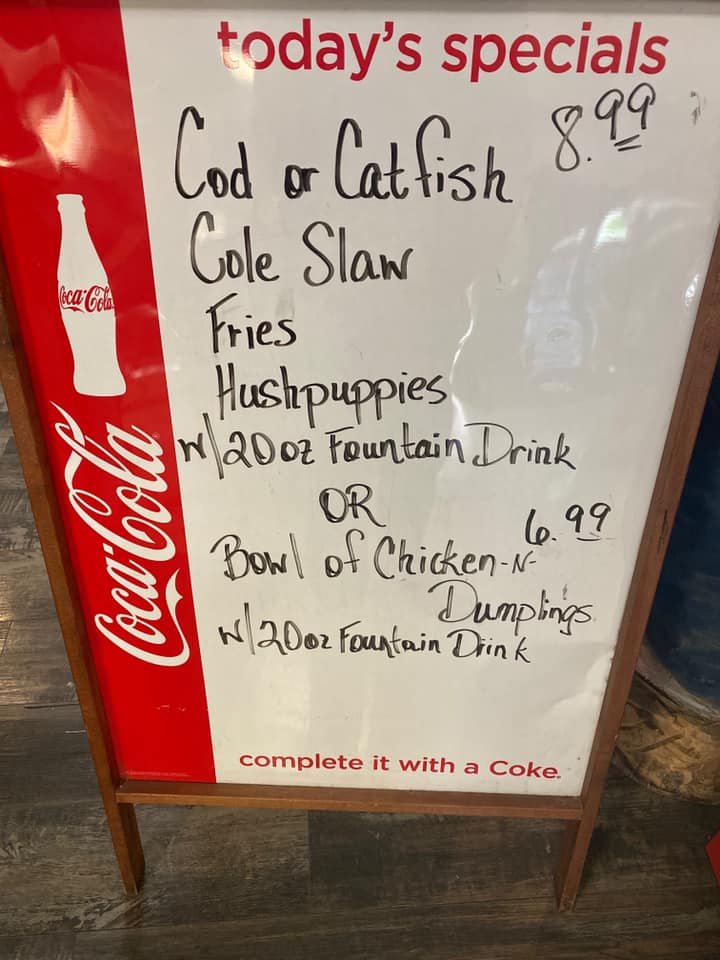 today's specials
8.99
Cod or Catfish
Cole Slaw
Fries
Hushpuppies
w/20oz Fountain Drink
OR
6.99
Bowl of Chicken-N-
Dumplings
w/20oz Fountain Drink
complete it with a Coke.
Coca-Cola
Coca-Cola